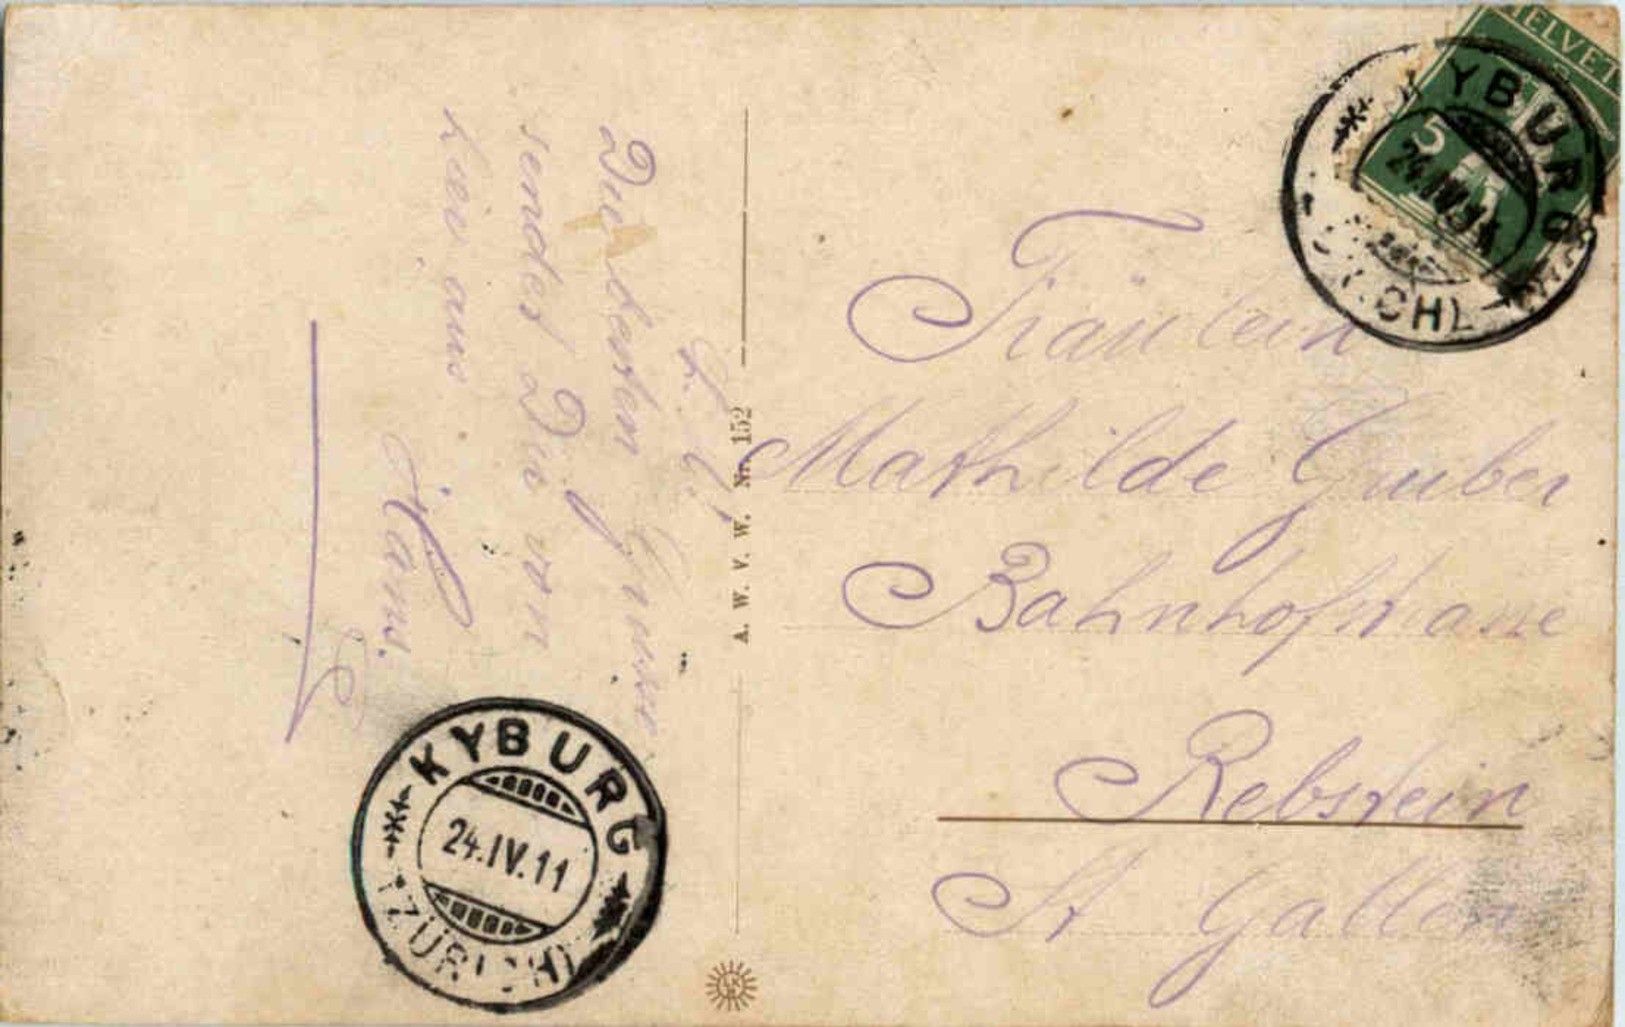 Die besten Grüsse
sendet Dir von
hier aus
Hans.
A. W. V. W. Nr. 152
Fräulein
Mathilde Gruber
Bahnhofstrasse
Rebstein
St Gallen
KYBURG
24.IV.11
(ZÜRICH)
HELVET
5
KYBURG
24.IV.11